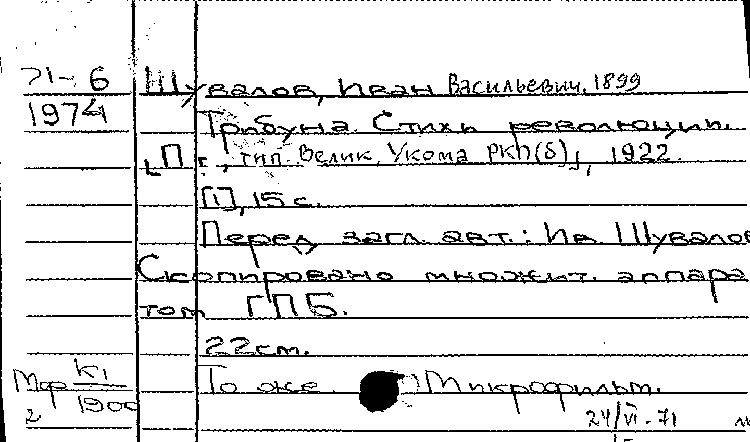 71-6 Шувалов, Иван Васильевич, 1899
1974 Трибуна. Стихи революции.
[П г., тип. Велик. Укома РКП(б)], 1922.
[1], 15 с.
Перед загл. авт.: Ив. Шувалов
Скопировано множит. аппара
том ГПБ.
22 см.
Мф К1/1900 То же. Микрофильм.
2 24/VI-71